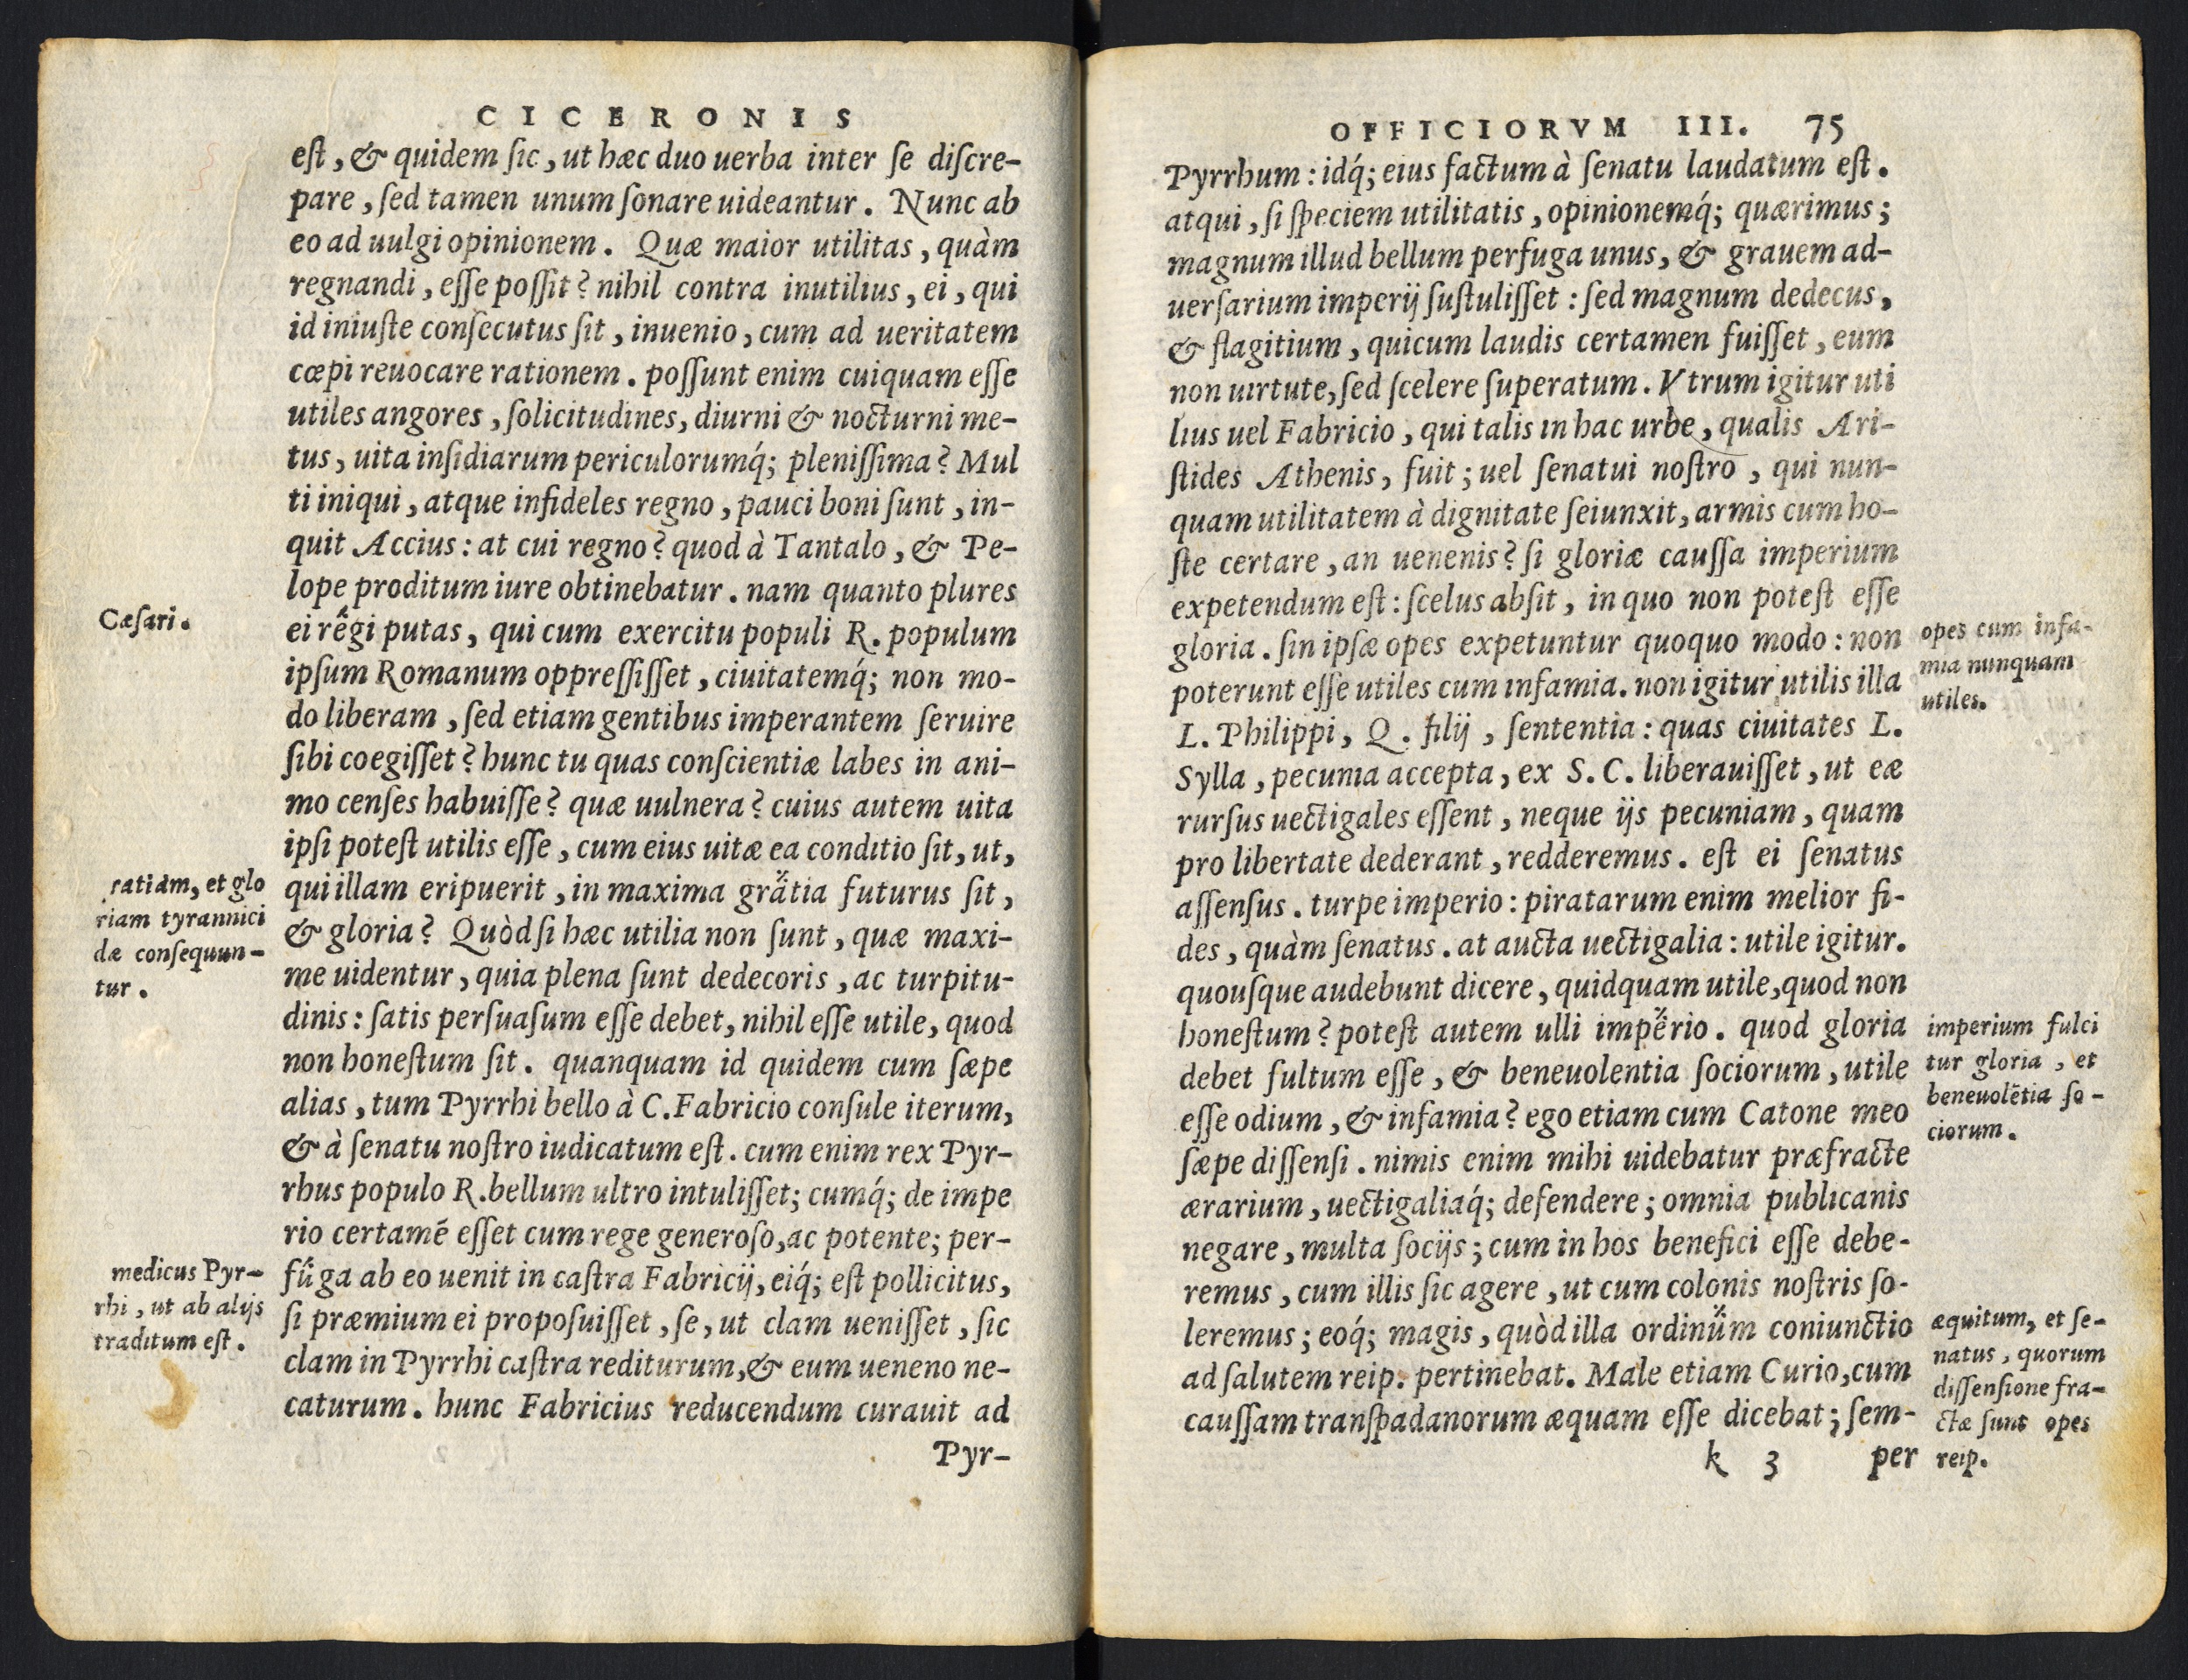 CICERONIS
est, & quidem sic, ut hæc duo uerba inter se discre-
pare, sed tamen unum sonare uideantur. Nunc ab
eo ad uulgi opinionem. Quæ maior utilitas, quàm
regnandi, esse possit? nihil contra inutilius, ei, qui
id iniuste consecutus sit, inuenio, cum ad ueritatem
cœpi reuocare rationem. possunt enim cuiquam esse
utiles angores, solicitudines, diurni & nocturni me-
tus, uita insidiarum periculorumq́; plenissima? Mul
ti iniqui, atque infideles regno, pauci boni sunt, in-
quit Accius: at cui regno? quod à Tantalo, & Pe-
lope proditum iure obtinebatur. nam quanto plures
ei regi putas, qui cum exercitu populi R. populum
ipsum Romanum oppressisset, ciuitatemq́; non mo-
do liberam, sed etiam gentibus imperantem seruire
sibi coegisset? hunc tu quas conscientiæ labes in ani-
mo censes habuisse? quæ uulnera? cuius autem uita
ipsi potest utilis esse, cum eius uitæ ea conditio sit, ut,
qui illam eripuerit, in maxima gratia futurus sit,
& gloria? Quòd si hæc utilia non sunt, quæ maxi-
me uidentur, quia plena sunt dedecoris, ac turpitu-
dinis: satis persuasum esse debet, nihil esse utile, quod
non honestum sit. quanquam id quidem cum sæpe
alias, tum Pyrrhi bello à C. Fabricio consule iterum,
& à senatu nostro iudicatum est. cum enim rex Pyr-
rhus populo R. bellum ultro intulisset; cumq́; de impe
rio certamē esset cum rege generoso, ac potente; per-
fuga ab eo uenit in castra Fabricij, eiq́; est pollicitus,
si præmium ei proposuisset, se, ut clam uenisset, sic
clam in Pyrrhi castra rediturum, & eum ueneno ne-
caturum. hunc Fabricius reducendum curauit ad
Pyr-
Cæsari.
ratiam, et glo
riam tyrannici
dæ consequun-
tur.
medicus Pyr-
rhi, ut ab alijs
traditum est.
OFFICIORVM III. 75
Pyrrhum: idq́; eius factum à senatu laudatum est.
atqui, si speciem utilitatis, opinionemq́; quærimus;
magnum illud bellum perfuga unus, & grauem ad-
uersarium imperij sustulisset: sed magnum dedecus,
& flagitium, quicum laudis certamen fuisset, eum
non uirtute, sed scelere superatum. Vtrum igitur uti
lius uel Fabricio, qui talis in hac urbe, qualis Ari-
stides Athenis, fuit; uel senatui nostro, qui nun-
quam utilitatem à dignitate seiunxit, armis cum ho-
ste certare, an uenenis? si gloriæ caussa imperium
expetendum est: scelus absit, in quo non potest esse
gloria. sin ipsæ opes expetuntur quoquo modo: non
poterunt esse utiles cum infamia. non igitur utilis illa
L. Philippi, Q. filij, sententia: quas ciuitates L.
Sylla, pecunia accepta, ex S. C. liberauisset, ut eæ
rursus uectigales essent, neque ijs pecuniam, quam
pro libertate dederant, redderemus. est ei senatus
assensus. turpe imperio: piratarum enim melior fi-
des, quàm senatus. at aucta uectigalia: utile igitur.
quousque audebunt dicere, quidquam utile, quod non
honestum? potest autem ulli imperio. quod gloria
debet fultum esse, & beneuolentia sociorum, utile
esse odium, & infamia? ego etiam cum Catone meo
sæpe dissensi. nimis enim mihi uidebatur præfracte
ærarium, uectigaliaq́; defendere; omnia publicanis
negare, multa socijs; cum in hos benefici esse debe-
remus, cum illis sic agere, ut cum colonis nostris so-
leremus; eoq́; magis, quòd illa ordinum coniunctio
ad salutem reip. pertinebat. Male etiam Curio, cum
caussam transpadanorum æquam esse dicebat; sem-
k 3 per
opes cum infa-
mia nunquam
utiles.
imperium fulci
tur gloria, et
beneuolētia so-
ciorum.
æquitum, et se-
natus, quorum
dissensione fra-
ctæ sunt opes
reip.